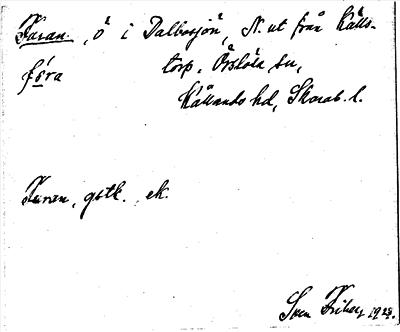 Furan, ö i Dalbosjön, N. ut från Källs-
fúra torp, Örslösa sn,
Kållands hd, Skarab. l.
Furan, gstk. ek.
Sven Friberg 1928.